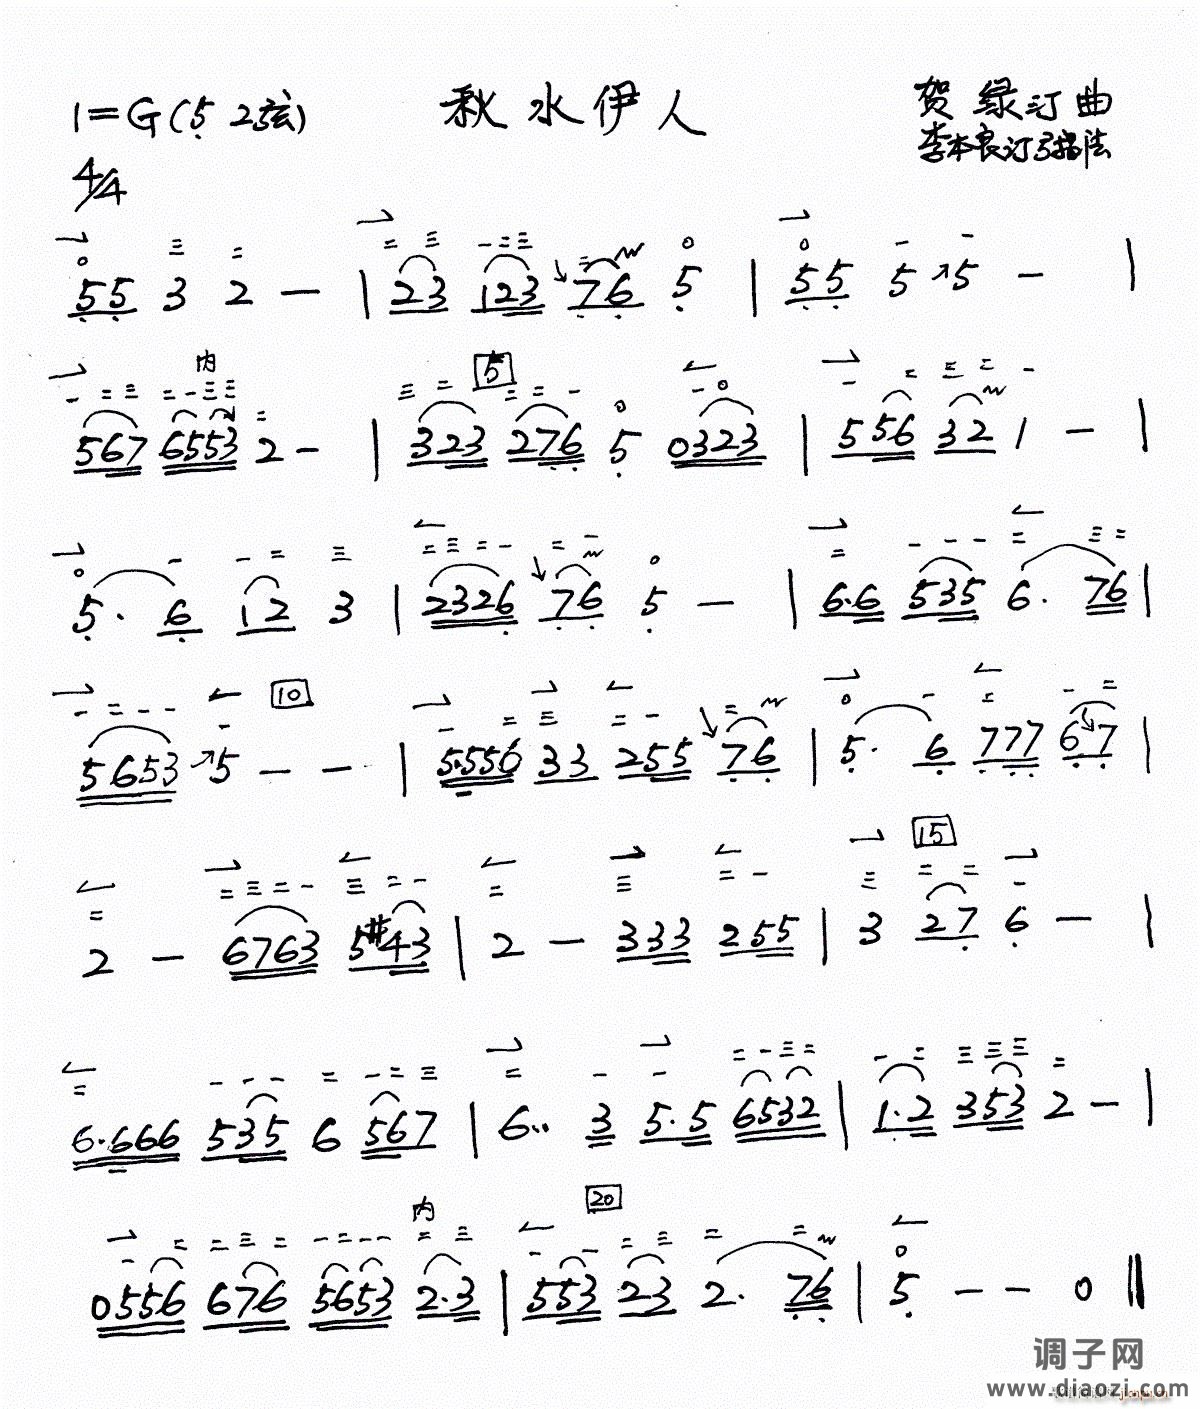 1=G(5 2弦) 秋水伊人 贺绿汀曲
4/4 李本良订弓指法
55 3 2 — | 23 123 76 5 | 55 5 ↗5 — |
内 5
567 6553 2 — | 323 276 5 0323 | 556 32 1 — |
5· 6 12 3 | 2326 76 5 — | 6·6 535 6· 76 |
10
5653 ↗5 — — | 5·556 33 255 76 | 5· 6 777 67 |
15
2 — 6763 5#43 | 2 — 333 255 | 3 27 6 — |
6·666 535 6 567 | 6·· 3 5·5 6532 | 1·2 353 2 — |
内 20
0556 676 5653 2·3 | 553 23 2· 76 | 5 — — 0 ‖
调子网
www.diaozi.com